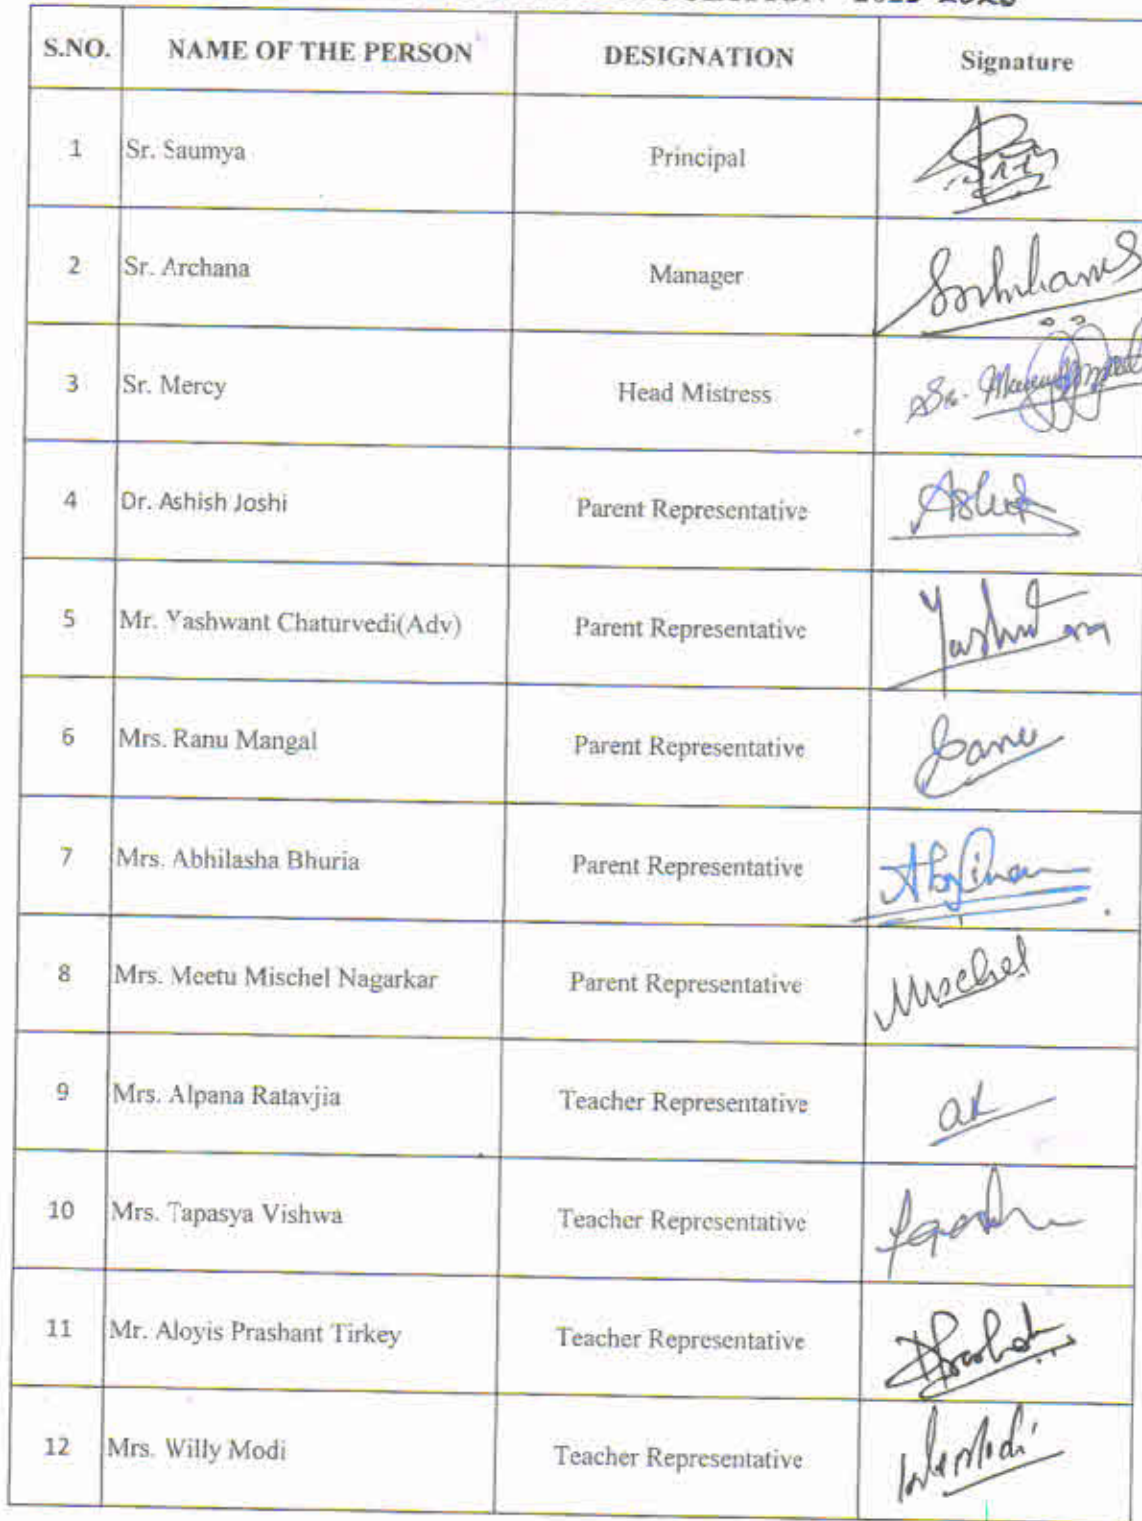 2025-2026
S.NO. NAME OF THE PERSON DESIGNATION Signature
1 Sr. Saumya Principal
2 Sr. Archana Manager
3 Sr. Mercy Head Mistress Sr. Mercy
4 Dr. Ashish Joshi Parent Representative Ashish
5 Mr. Yashwant Chaturvedi(Adv) Parent Representative
6 Mrs. Ranu Mangal Parent Representative Ranu
7 Mrs. Abhilasha Bhuria Parent Representative
8 Mrs. Meetu Mischel Nagarkar Parent Representative Mischel
9 Mrs. Alpana Ratavjia Teacher Representative
10 Mrs. Tapasya Vishwa Teacher Representative
11 Mr. Aloyis Prashant Tirkey Teacher Representative
12 Mrs. Willy Modi Teacher Representative